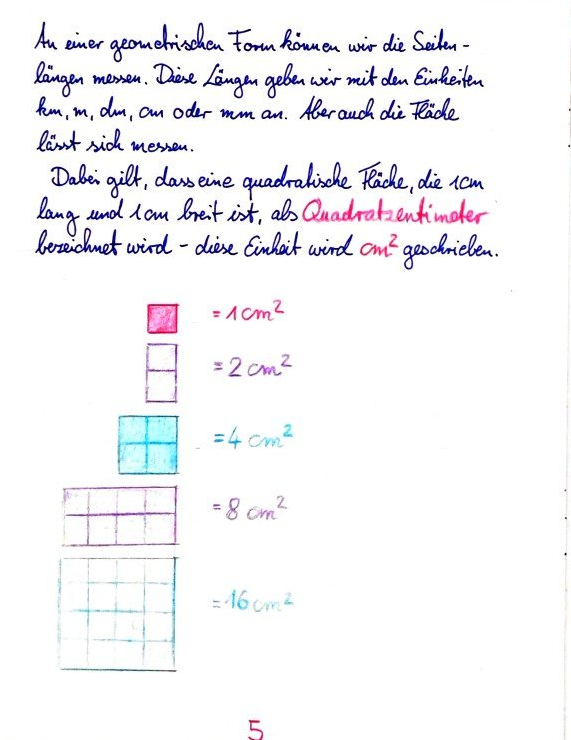 An einer geometrischen Form können wir die Seiten-
längen messen. Diese Längen geben wir mit den Einheiten
km, m, dm, cm oder mm an. Aber auch die Fläche
lässt sich messen.
Dabei gilt, dass eine quadratische Fläche, die 1cm
lang und 1cm breit ist, als Quadratzentimeter
bezeichnet wird - diese Einheit wird cm² geschrieben.
= 1 cm²
= 2 cm²
= 4 cm²
= 8 cm²
= 16 cm²
5